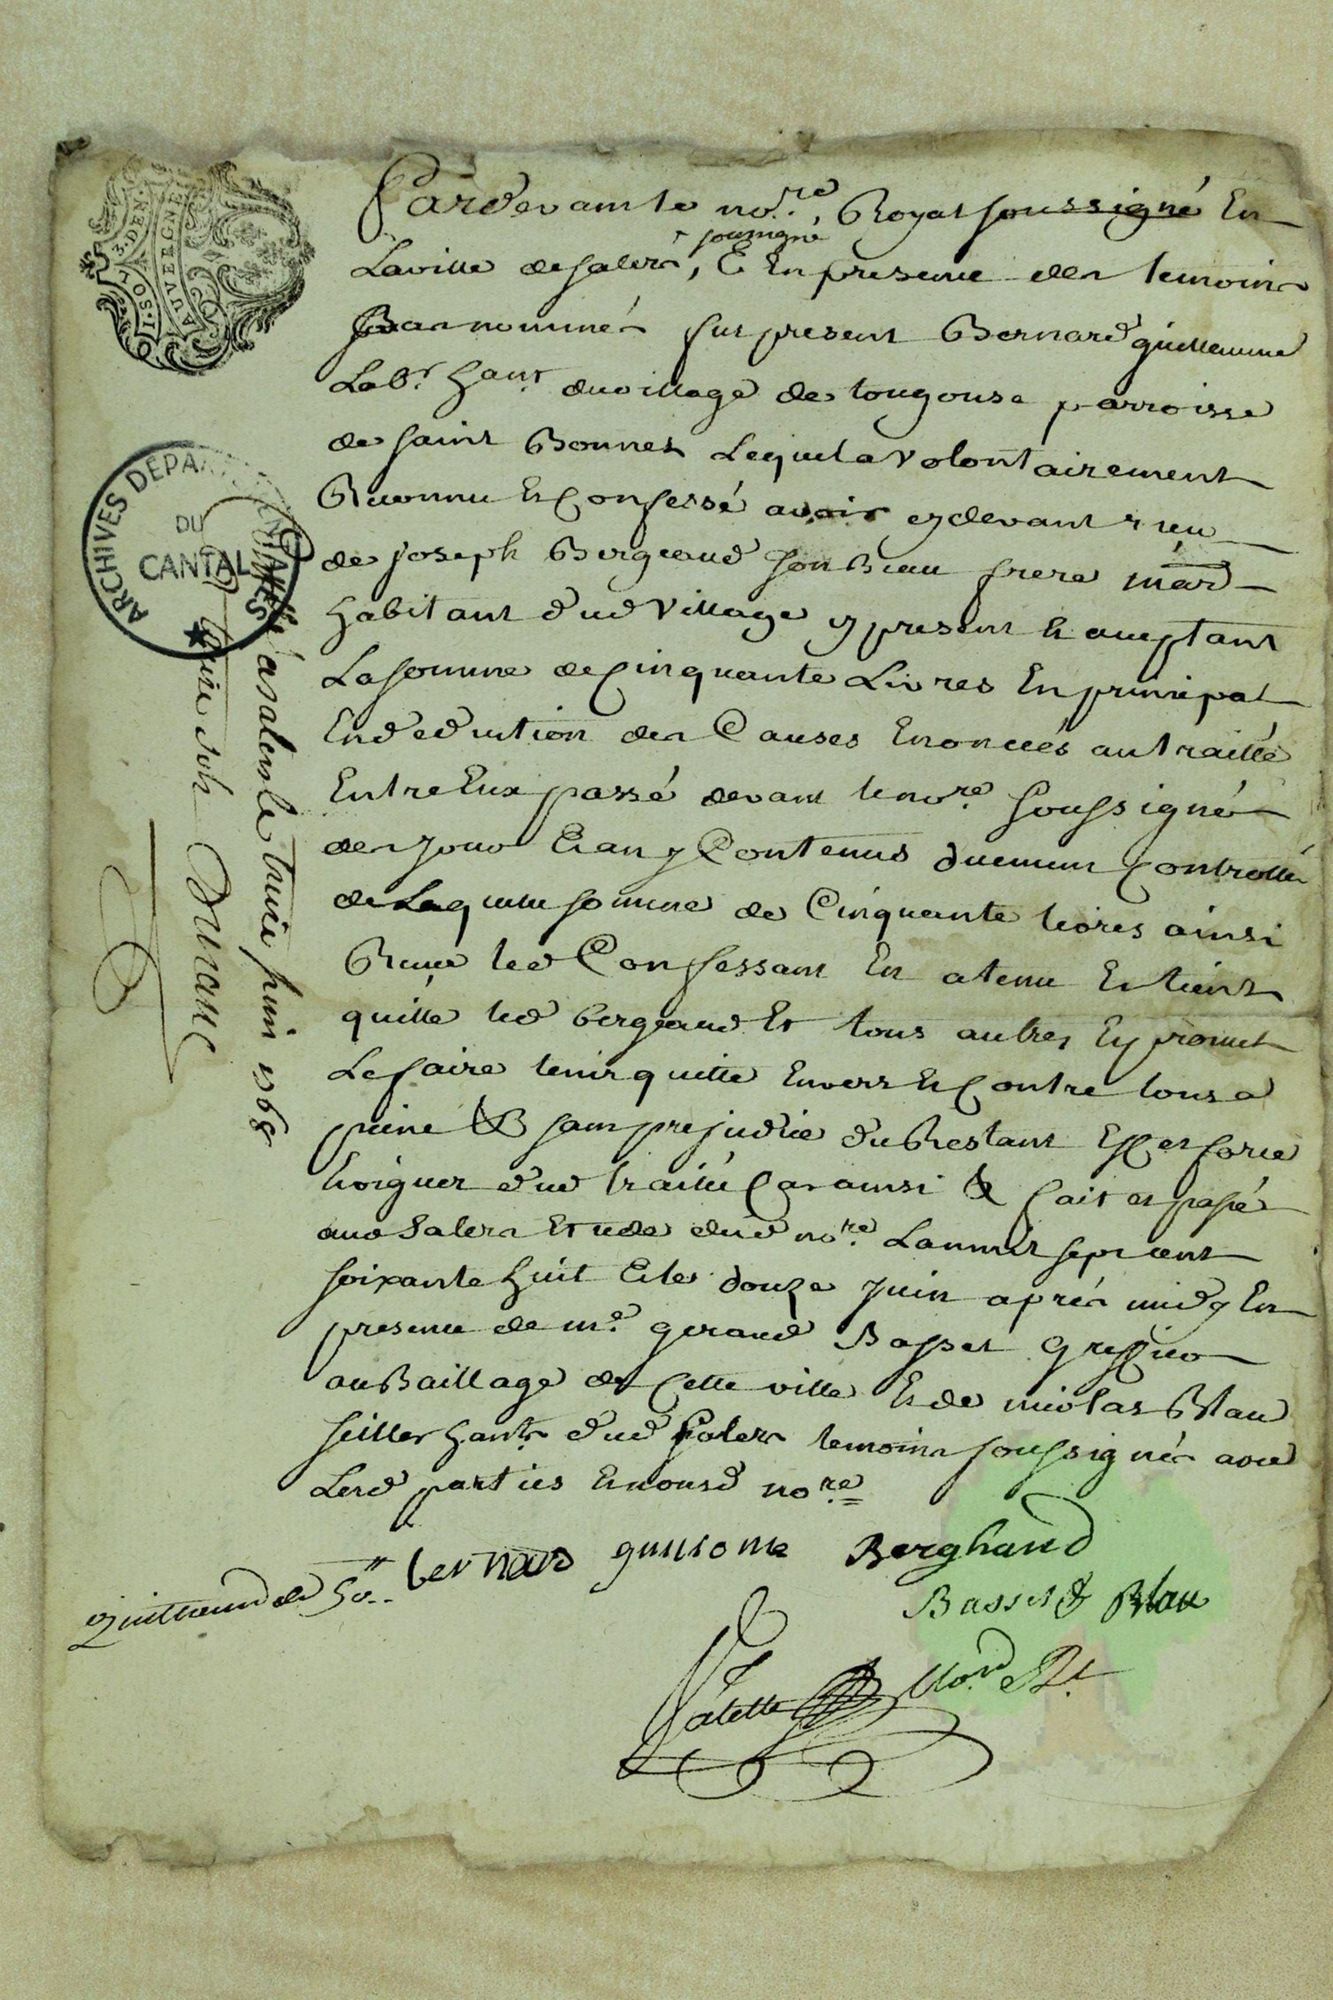 1. SOL. 3. DEN.
AUVERGNE
ARCHIVES DEPARTEMENTALES
DU
CANTAL
Pardevant le no.re Royal soussigné En
soussigné
La ville de salers, E En presence des temoins
Bas nommés fut present Bernard guillaume
Lab.r han.t du village de tougouse parroisse
de saint Bonnet Lequel a volontairement
Reconnu et Confessé avoir cy devant reçu
de Joseph Bergeaud son Beau frere mar.d
habitant dud village cy present et acceptant
La somme de Cinquante Livres En principal
En deduction des Causes Enoncées au traitté
Entre Eux passé devant le no.re soussigné
des jour et an y Contenus duement Controllé
de Laquelle somme de Cinquante livres ainsi
Recue led Confessant En a tenu Et tient
quitte led bergeaud Et tous autres Et promet
Le faire tenir quitte Envers et Contre tous a
peine & sans prejudice du Restant Et et force
vigueur dud traitté Car ainsi & fait et passé
aud Salers Etude dud no.re L'an mil sept cent
soixante huit Et le douze juin aprés midy En
presence de m.e geraud Basset greffier
au Baillage de Cette ville Et de nicolas Blau
han.ts dud salers temoins soussignés avec
Lesd parties Et nousd no.re
bernard guilisome Berghaud
quittance de 50.ll
Basset Blau
Valette no.re R.l
Controllé a salers le treize juin 1768
Reçu treize sols